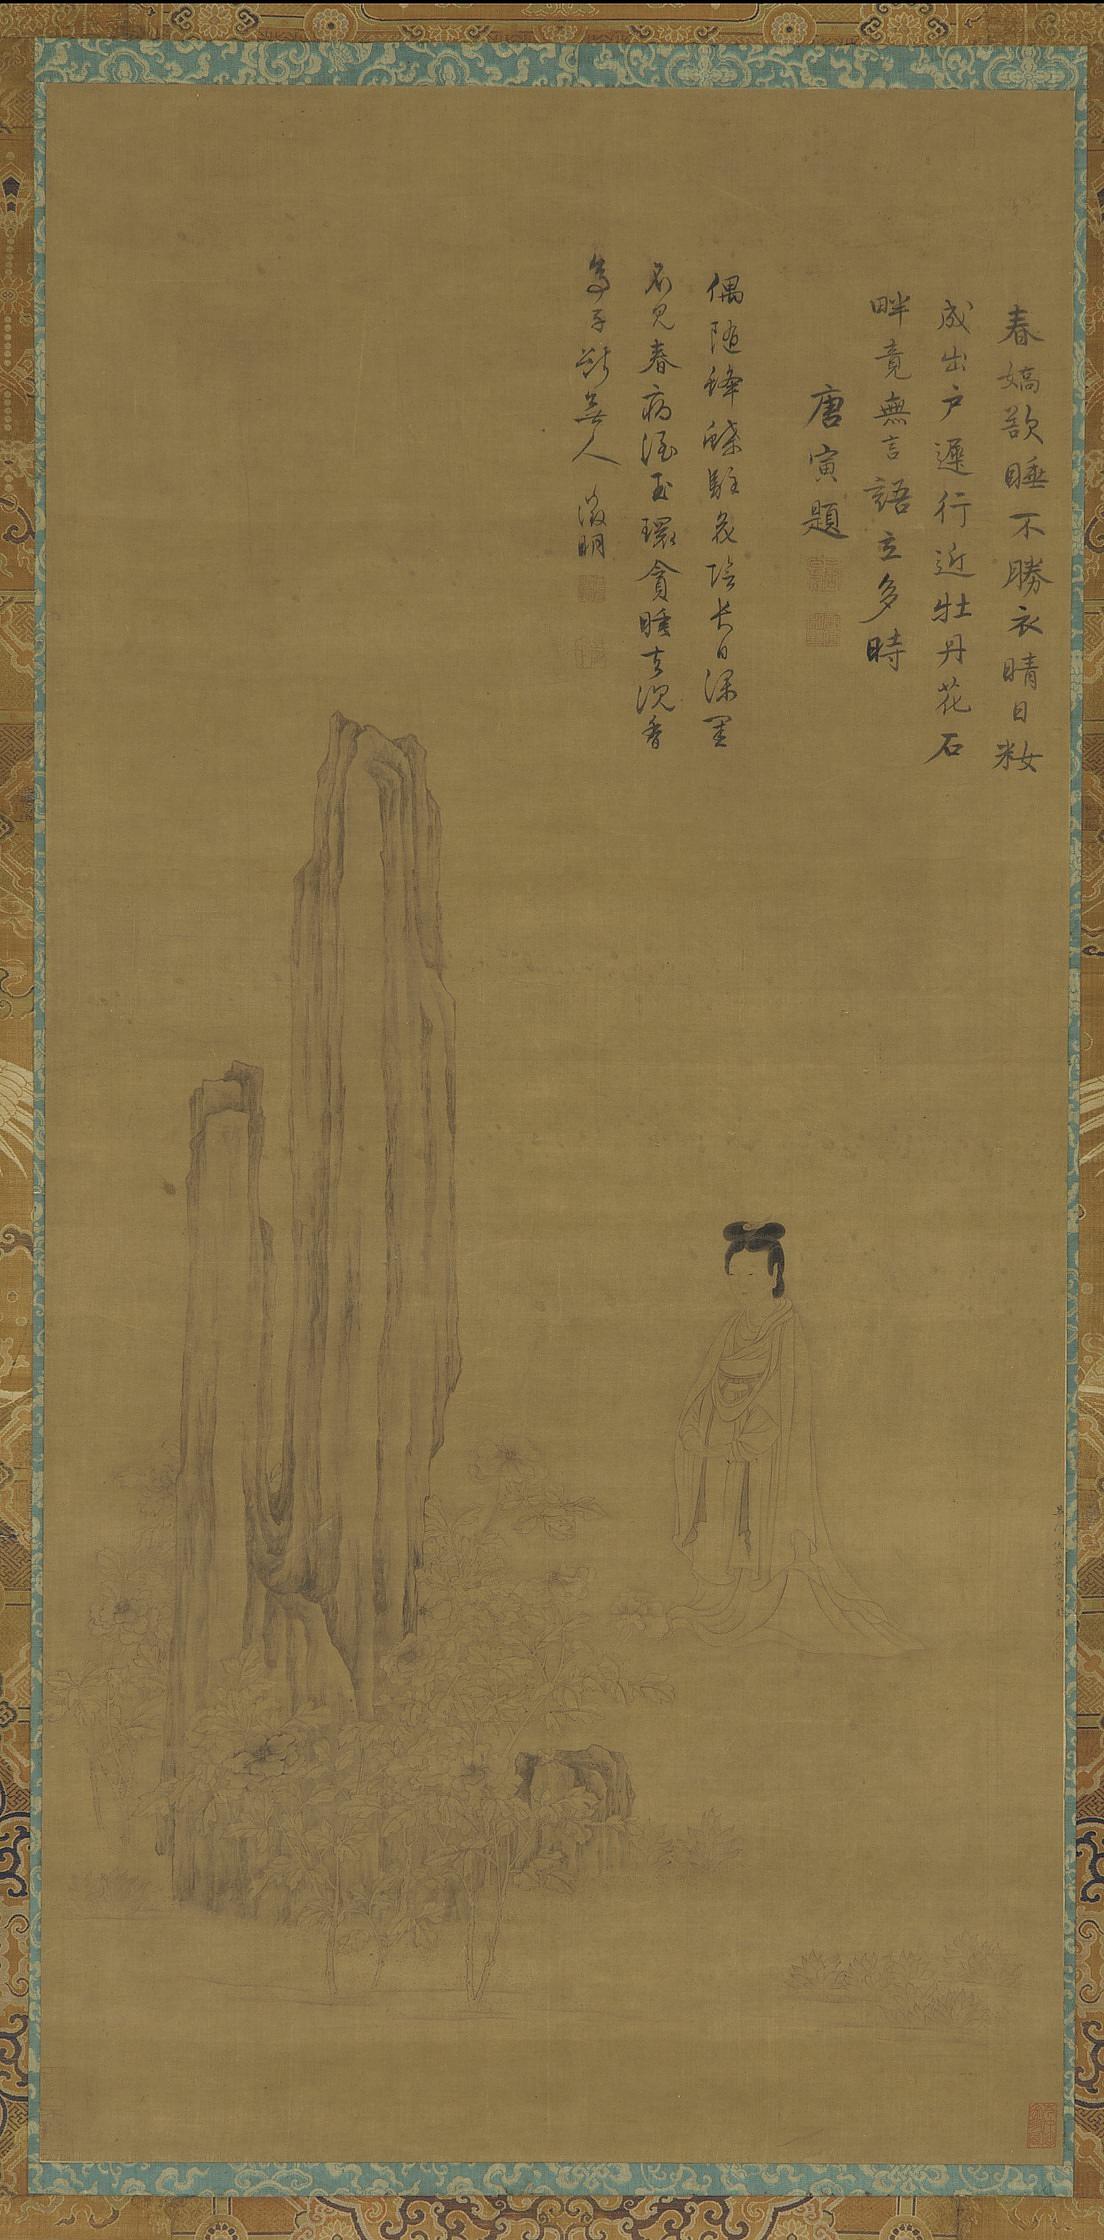 春嬌欲睡不勝衣晴日粧
成出戶遲行近牡丹花石
畔竟無言語立多時
唐寅題
偶隨蜂蝶駐花陰長日深閨
不見春病酒玉環貪睡去沉香
亭子斷無人 徵明
吳門仇英實父